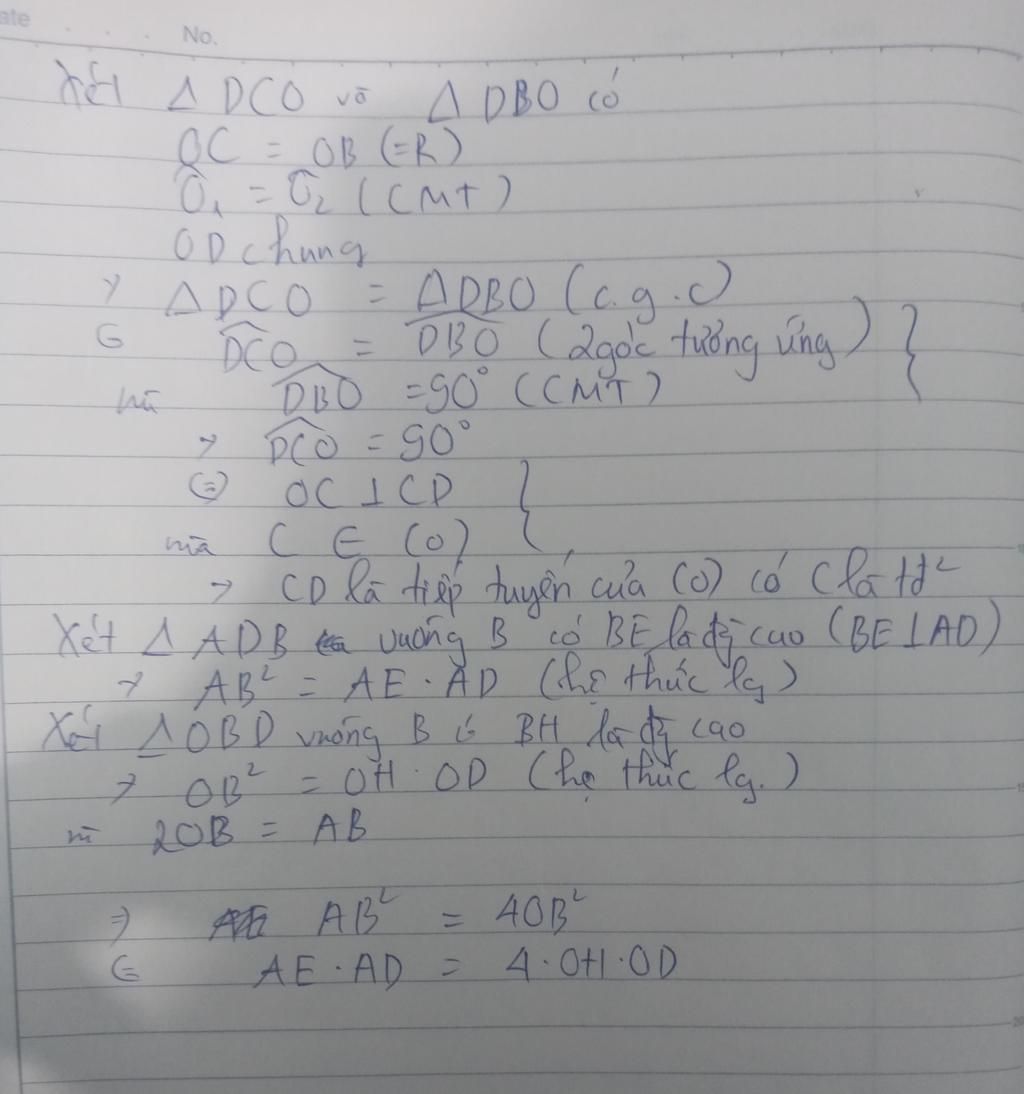 ate
No.
Xét Δ DCO và Δ DBO có
OC = OB (=R)
Ô₁ = Ô₂ (CMT)
OD chung
→ ΔDCO = ΔDBO (c.g.c)
⇔ \widehat{DCO} = \widehat{DBO} (2 góc tương ứng)
mà \widehat{DBO} = 90° (CMT)
→ \widehat{DCO} = 90°
⇔ OC ⊥ CD
mà C ∈ (O)
→ CD là tiếp tuyến của (O) có C là tđ²
Xét Δ ADB vuông B có BE là đg cao (BE ⊥ AD)
→ AB² = AE · AD (hệ thức lg)
Xét Δ OBD vuông B có BH là đg cao
→ OB² = OH · OD (hệ thức lg.)
mà 2OB = AB
⇒ AB² = 4OB²
⇔ AE · AD = 4 · OH · OD